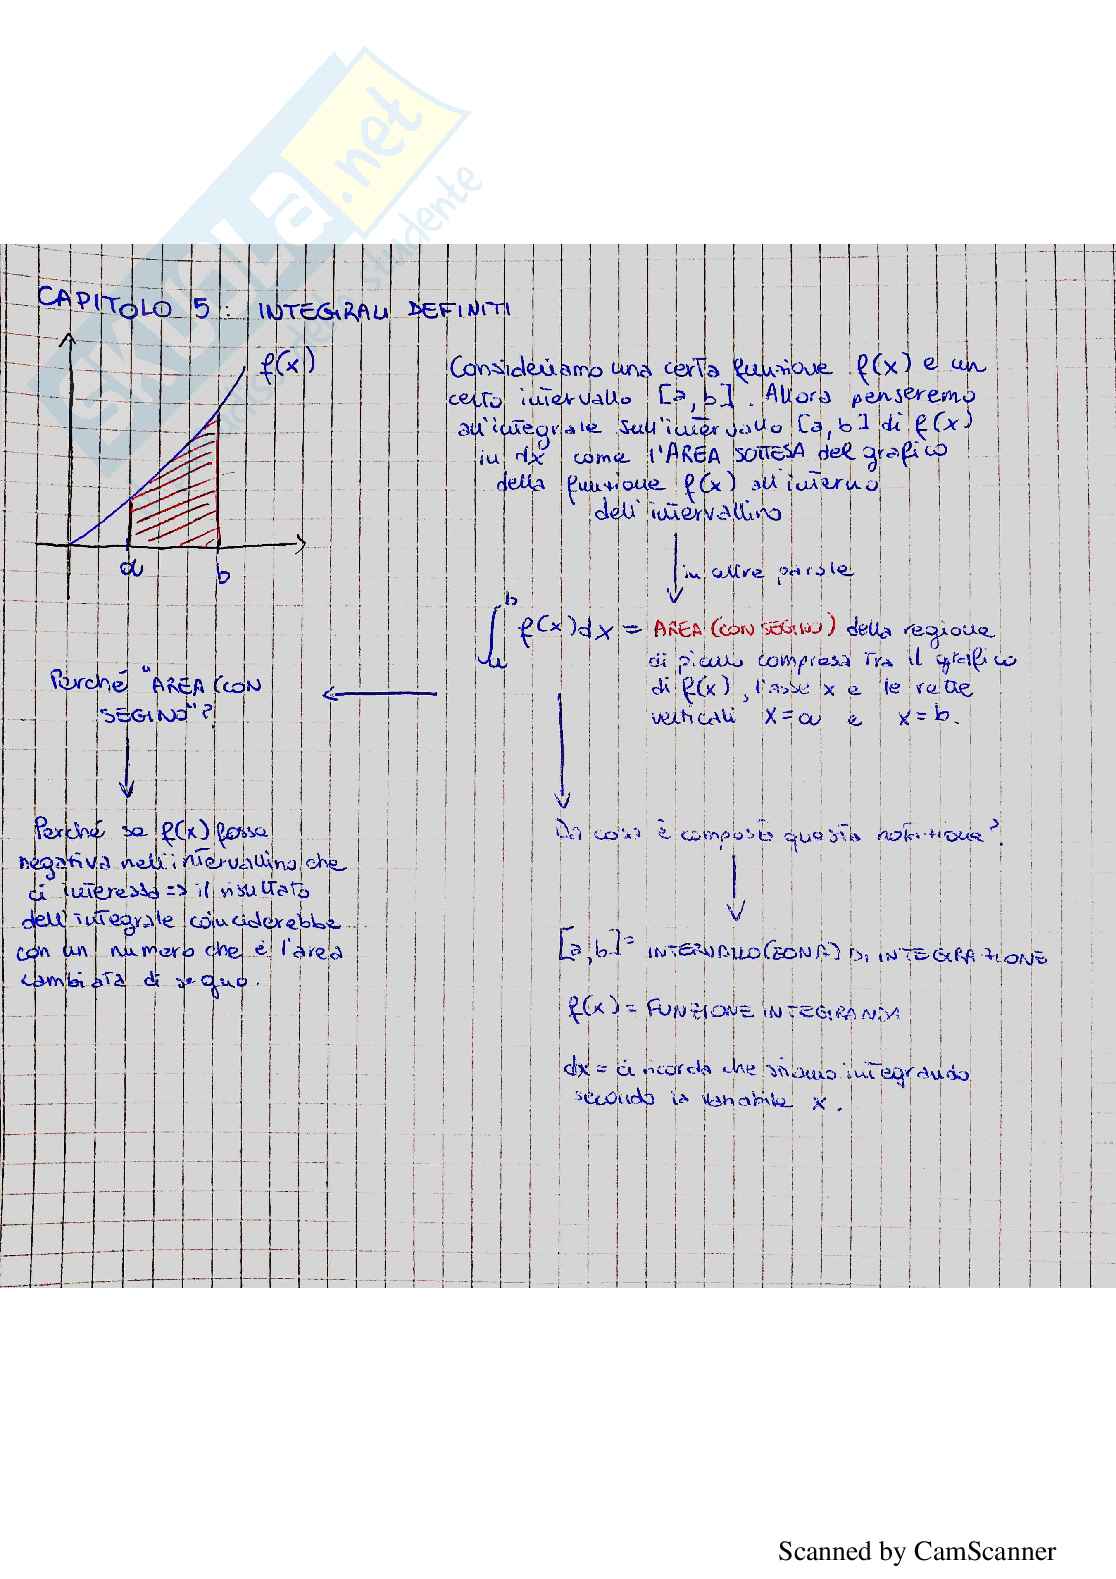 SKUOLA.net
studente
CAPITOLO 5: INTEGRALI DEFINITI
f(x)
a
b
Consideriamo una certa funzione f(x) e un
certo intervallo [a,b]. Allora penseremo
all'integrale sull'intervallo [a,b] di f(x)
in dx come l'AREA SOTTESA del grafico
della funzione f(x) all'interno
dell'intervallino
in altre parole
∫ₐᵇ f(x)dx = AREA (CON SEGNO) della regione
di piano compresa tra il grafico
di f(x), l'asse x e le rette
verticali x=a e x=b.
Perché "AREA (CON
SEGNO"?
Perché se f(x) fosse
negativa nell'intervallino che
ci interessa => il risultato
dell'integrale coinciderebbe
con un numero che è l'area
cambiata di segno.
Da cosa è composta questa notazione?
[a,b] = INTERVALLO (ZONA) DI INTEGRAZIONE
f(x) = FUNZIONE INTEGRANDA
dx = ci ricorda che stiamo integrando
secondo la variabile x.
Scanned by CamScanner